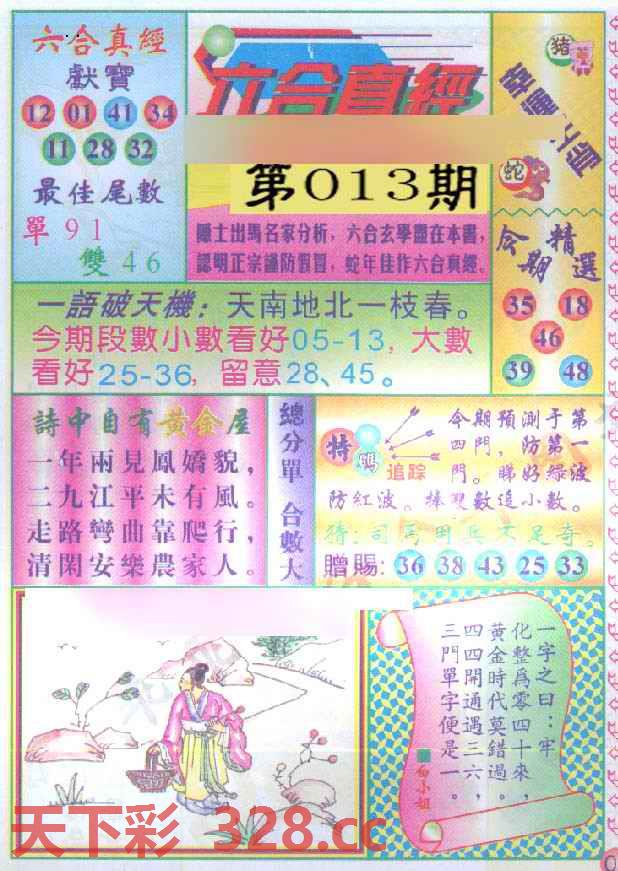 六合真經
獻寶
12 01 41 34
11 28 32
最佳尾數
單 9 1
雙 4 6
六合真經
第013期
隱士出馬名家分析，六合玄學盡在本書，
認明正宗謹防假冒，蛇年佳作六合真經。
豬
蛇
今期
精選
35 18
46
39 48
一語破天機：天南地北一枝春。
今期段數小數看好05-13，大數
看好25-36，留意28、45。
詩中自有黃金屋
一年兩見鳳嬌貌，
二九江平未有風。
走路彎曲靠爬行，
清閑安樂農家人。
總分單 合數大
特碼
追踪
今期預測于第
四門，防第一
門。睇好綠波
防紅波。捧雙數追小數。
猜：司馬田兵不足奇。
贈賜：36 38 43 25 33
一字之曰：牢
化整爲零四十來，
黄金時代莫錯過。
四四開通遇三六，
三門單字便是一。
白小姐
天下彩 328.cc